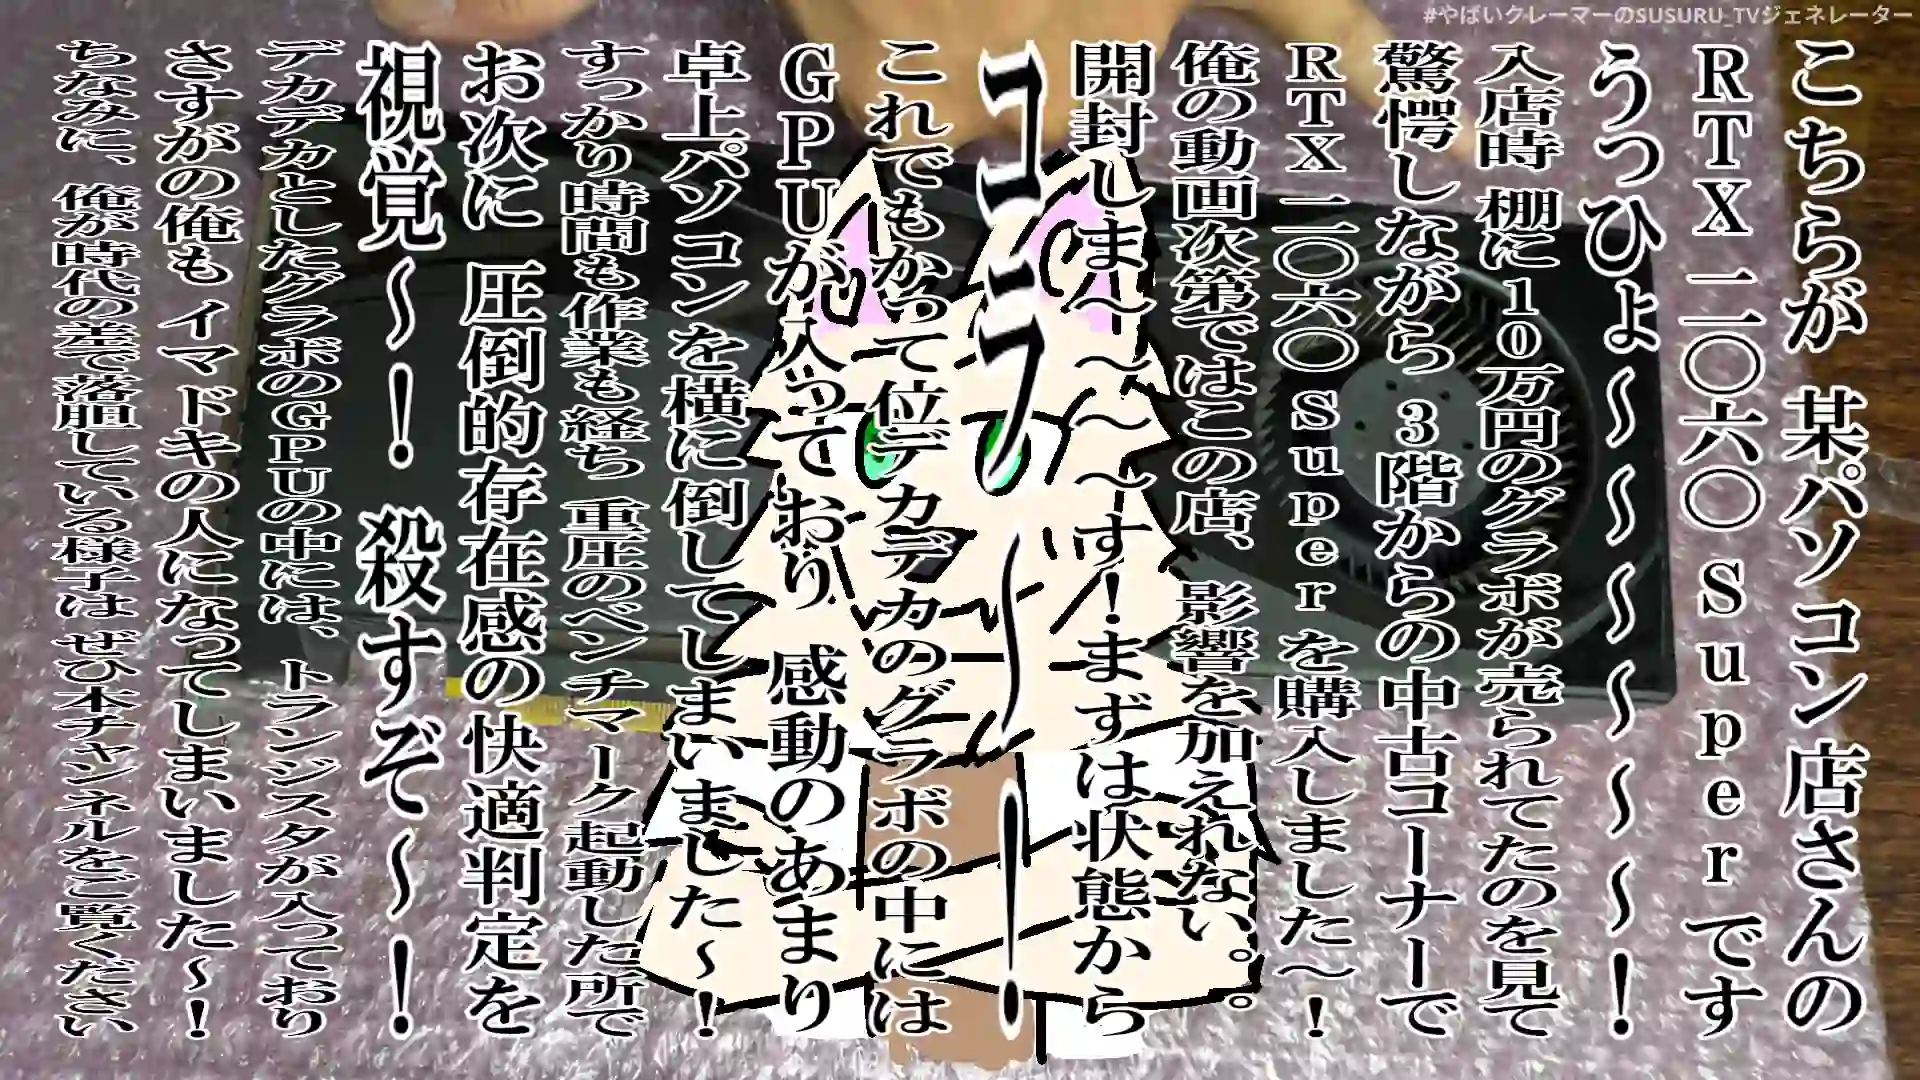 #やばいクレーマーのSUSURU_TVジェネレーター
こちらが 某パソコン店さんの
RTX 二〇六〇 Superです
うっひょ～～～～～～！
入店時 棚に10万円のグラボが売られてたのを見て
驚愕しながら 3階からの中古コーナーで
RTX 二〇六〇 Superを購入しました～！
俺の動画次第ではこの店、影響を加えれない。。
開封しま～～～す！まずは状態から
コラ～！
これでもかって位デカデカのグラボの中には
GPUが入っており 感動のあまり
卓上パソコンを横に倒してしまいました～！
すっかり時間も作業も経ち 重圧のベンチマーク起動した所で
お次に 圧倒的存在感の快適判定を
視覚～！殺すぞ～！
デカデカとしたグラボのGPUの中には、トランジスタが入っており
さすがの俺も イマドキの人になってしまいました～！
ちなみに、俺が時代の差で落胆している様子は ぜひ本チャンネルをご覧ください